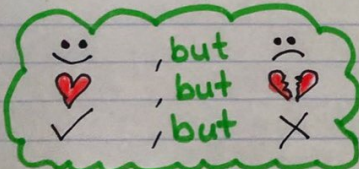 , but
, but
, but